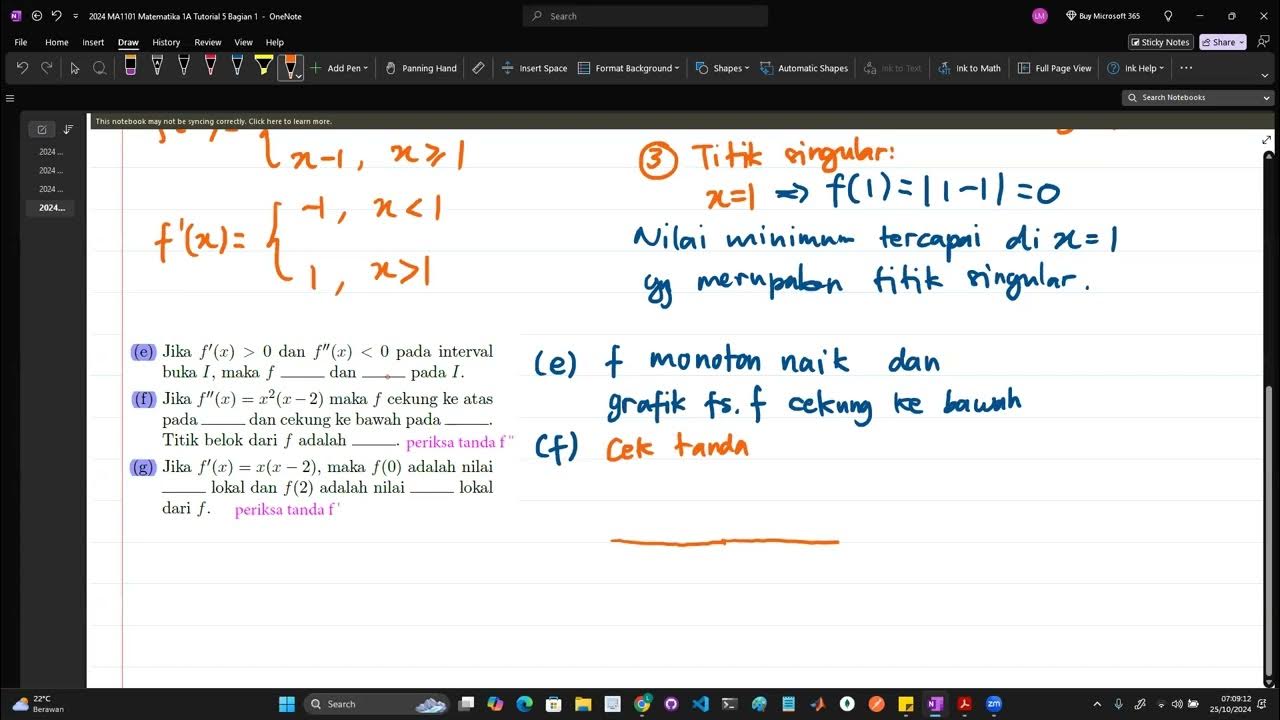 2024 MA1101 Matematika 1A Tutorial 5 Bagian 1 - OneNote
Search
LM
Buy Microsoft 365
File Home Insert Draw History Review View Help
Sticky Notes
Share
Add Pen
Panning Hand
Insert Space
Format Background
Shapes
Automatic Shapes
Ink to Text
Ink to Math
Full Page View
Ink Help
Search Notebooks
This notebook may not be syncing correctly. Click here to learn more.
2024 ...
2024 ...
2024 ...
2024...
x-1, x ≥ 1
f'(x) = { -1, x < 1
1, x > 1
③ Titik singular:
x=1 => f(1) = |1-1| = 0
Nilai minimum tercapai di x=1
yg merupakan titik singular.
(e) Jika f′(x) > 0 dan f″(x) < 0 pada interval
buka I, maka f _____ dan _____ pada I.
(f) Jika f″(x) = x²(x − 2) maka f cekung ke atas
pada _____ dan cekung ke bawah pada _____.
Titik belok dari f adalah _____. periksa tanda f"
(g) Jika f′(x) = x(x − 2), maka f(0) adalah nilai
_____ lokal dan f(2) adalah nilai _____ lokal
dari f. periksa tanda f'
(e) f monoton naik dan
grafik fs. f cekung ke bawah
(f) Cek tanda
22°C
Berawan
Search
07:09:12
25/10/2024